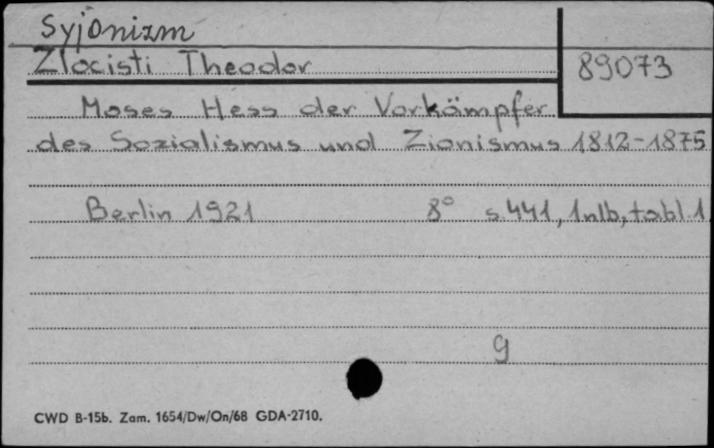 Syjonizm
Zlocisti Theodor
89073
Moses Hess der Vorkämpfer
des Sozialismus und Zionismus 1812-1875
Berlin 1921 8° s. 441, 1 nlb, tabl. 1
g
CWD B-15b. Zam. 1654/Dw/On/68 GDA-2710.